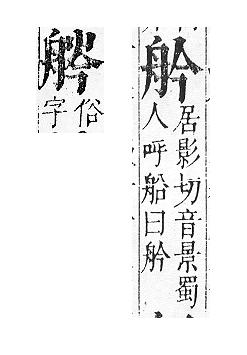 居影切音景蜀
人呼船曰
俗
字